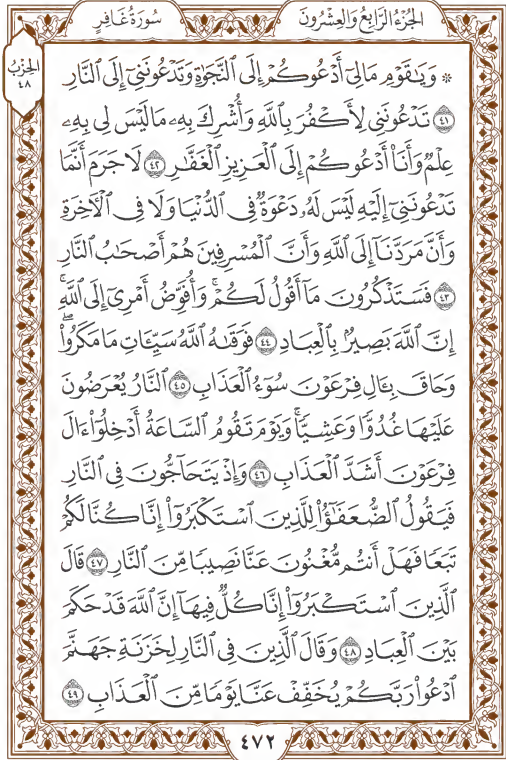 سُورَةُ غَافِرٍ
الجُزْءُ الرَّابِعُ وَالعِشْرُونَ
الحِزْبُ
٤٨
۞ وَيَٰقَوۡمِ مَا لِيٓ أَدۡعُوكُمۡ إِلَى ٱلنَّجَوٰةِ وَتَدۡعُونَنِيٓ إِلَى ٱلنَّارِ
٤١ تَدۡعُونَنِي لِأَكۡفُرَ بِٱللَّهِ وَأُشۡرِكَ بِهِۦ مَا لَيۡسَ لِي بِهِۦ
عِلۡمٞ وَأَنَا۠ أَدۡعُوكُمۡ إِلَى ٱلۡعَزِيزِ ٱلۡغَفَّٰرِ ٤٢ لَا جَرَمَ أَنَّمَا
تَدۡعُونَنِيٓ إِلَيۡهِ لَيۡسَ لَهُۥ دَعۡوَةٞ فِي ٱلدُّنۡيَا وَلَا فِي ٱلۡأٓخِرَةِ
وَأَنَّ مَرَدَّنَآ إِلَى ٱللَّهِ وَأَنَّ ٱلۡمُسۡرِفِينَ هُمۡ أَصۡحَٰبُ ٱلنَّارِ
٤٣ فَسَتَذۡكُرُونَ مَآ أَقُولُ لَكُمۡۚ وَأُفَوِّضُ أَمۡرِيٓ إِلَى ٱللَّهِۚ
إِنَّ ٱللَّهَ بَصِيرُۢ بِٱلۡعِبَادِ ٤٤ فَوَقَىٰهُ ٱللَّهُ سَيِّـَٔاتِ مَا مَكَرُواْۖ
وَحَاقَ بِـَٔالِ فِرۡعَوۡنَ سُوٓءُ ٱلۡعَذَابِ ٤٥ ٱلنَّارُ يُعۡرَضُونَ
عَلَيۡهَا غُدُوّٗا وَعَشِيّٗاۚ وَيَوۡمَ تَقُومُ ٱلسَّاعَةُ أَدۡخِلُوٓاْ ءَالَ
فِرۡعَوۡنَ أَشَدَّ ٱلۡعَذَابِ ٤٦ وَإِذۡ يَتَحَآجُّونَ فِي ٱلنَّارِ
فَيَقُولُ ٱلضُّعَفَٰٓؤُاْ لِلَّذِينَ ٱسۡتَكۡبَرُوٓاْ إِنَّا كُنَّا لَكُمۡ
تَبَعٗا فَهَلۡ أَنتُم مُّغۡنُونَ عَنَّا نَصِيبٗا مِّنَ ٱلنَّارِ ٤٧ قَالَ
ٱلَّذِينَ ٱسۡتَكۡبَرُوٓاْ إِنَّا كُلّٞ فِيهَآ إِنَّ ٱللَّهَ قَدۡ حَكَمَ
بَيۡنَ ٱلۡعِبَادِ ٤٨ وَقَالَ ٱلَّذِينَ فِي ٱلنَّارِ لِخَزَنَةِ جَهَنَّمَ
ٱدۡعُواْ رَبَّكُمۡ يُخَفِّفۡ عَنَّا يَوۡمٗا مِّنَ ٱلۡعَذَابِ ٤٩
٤٧٢